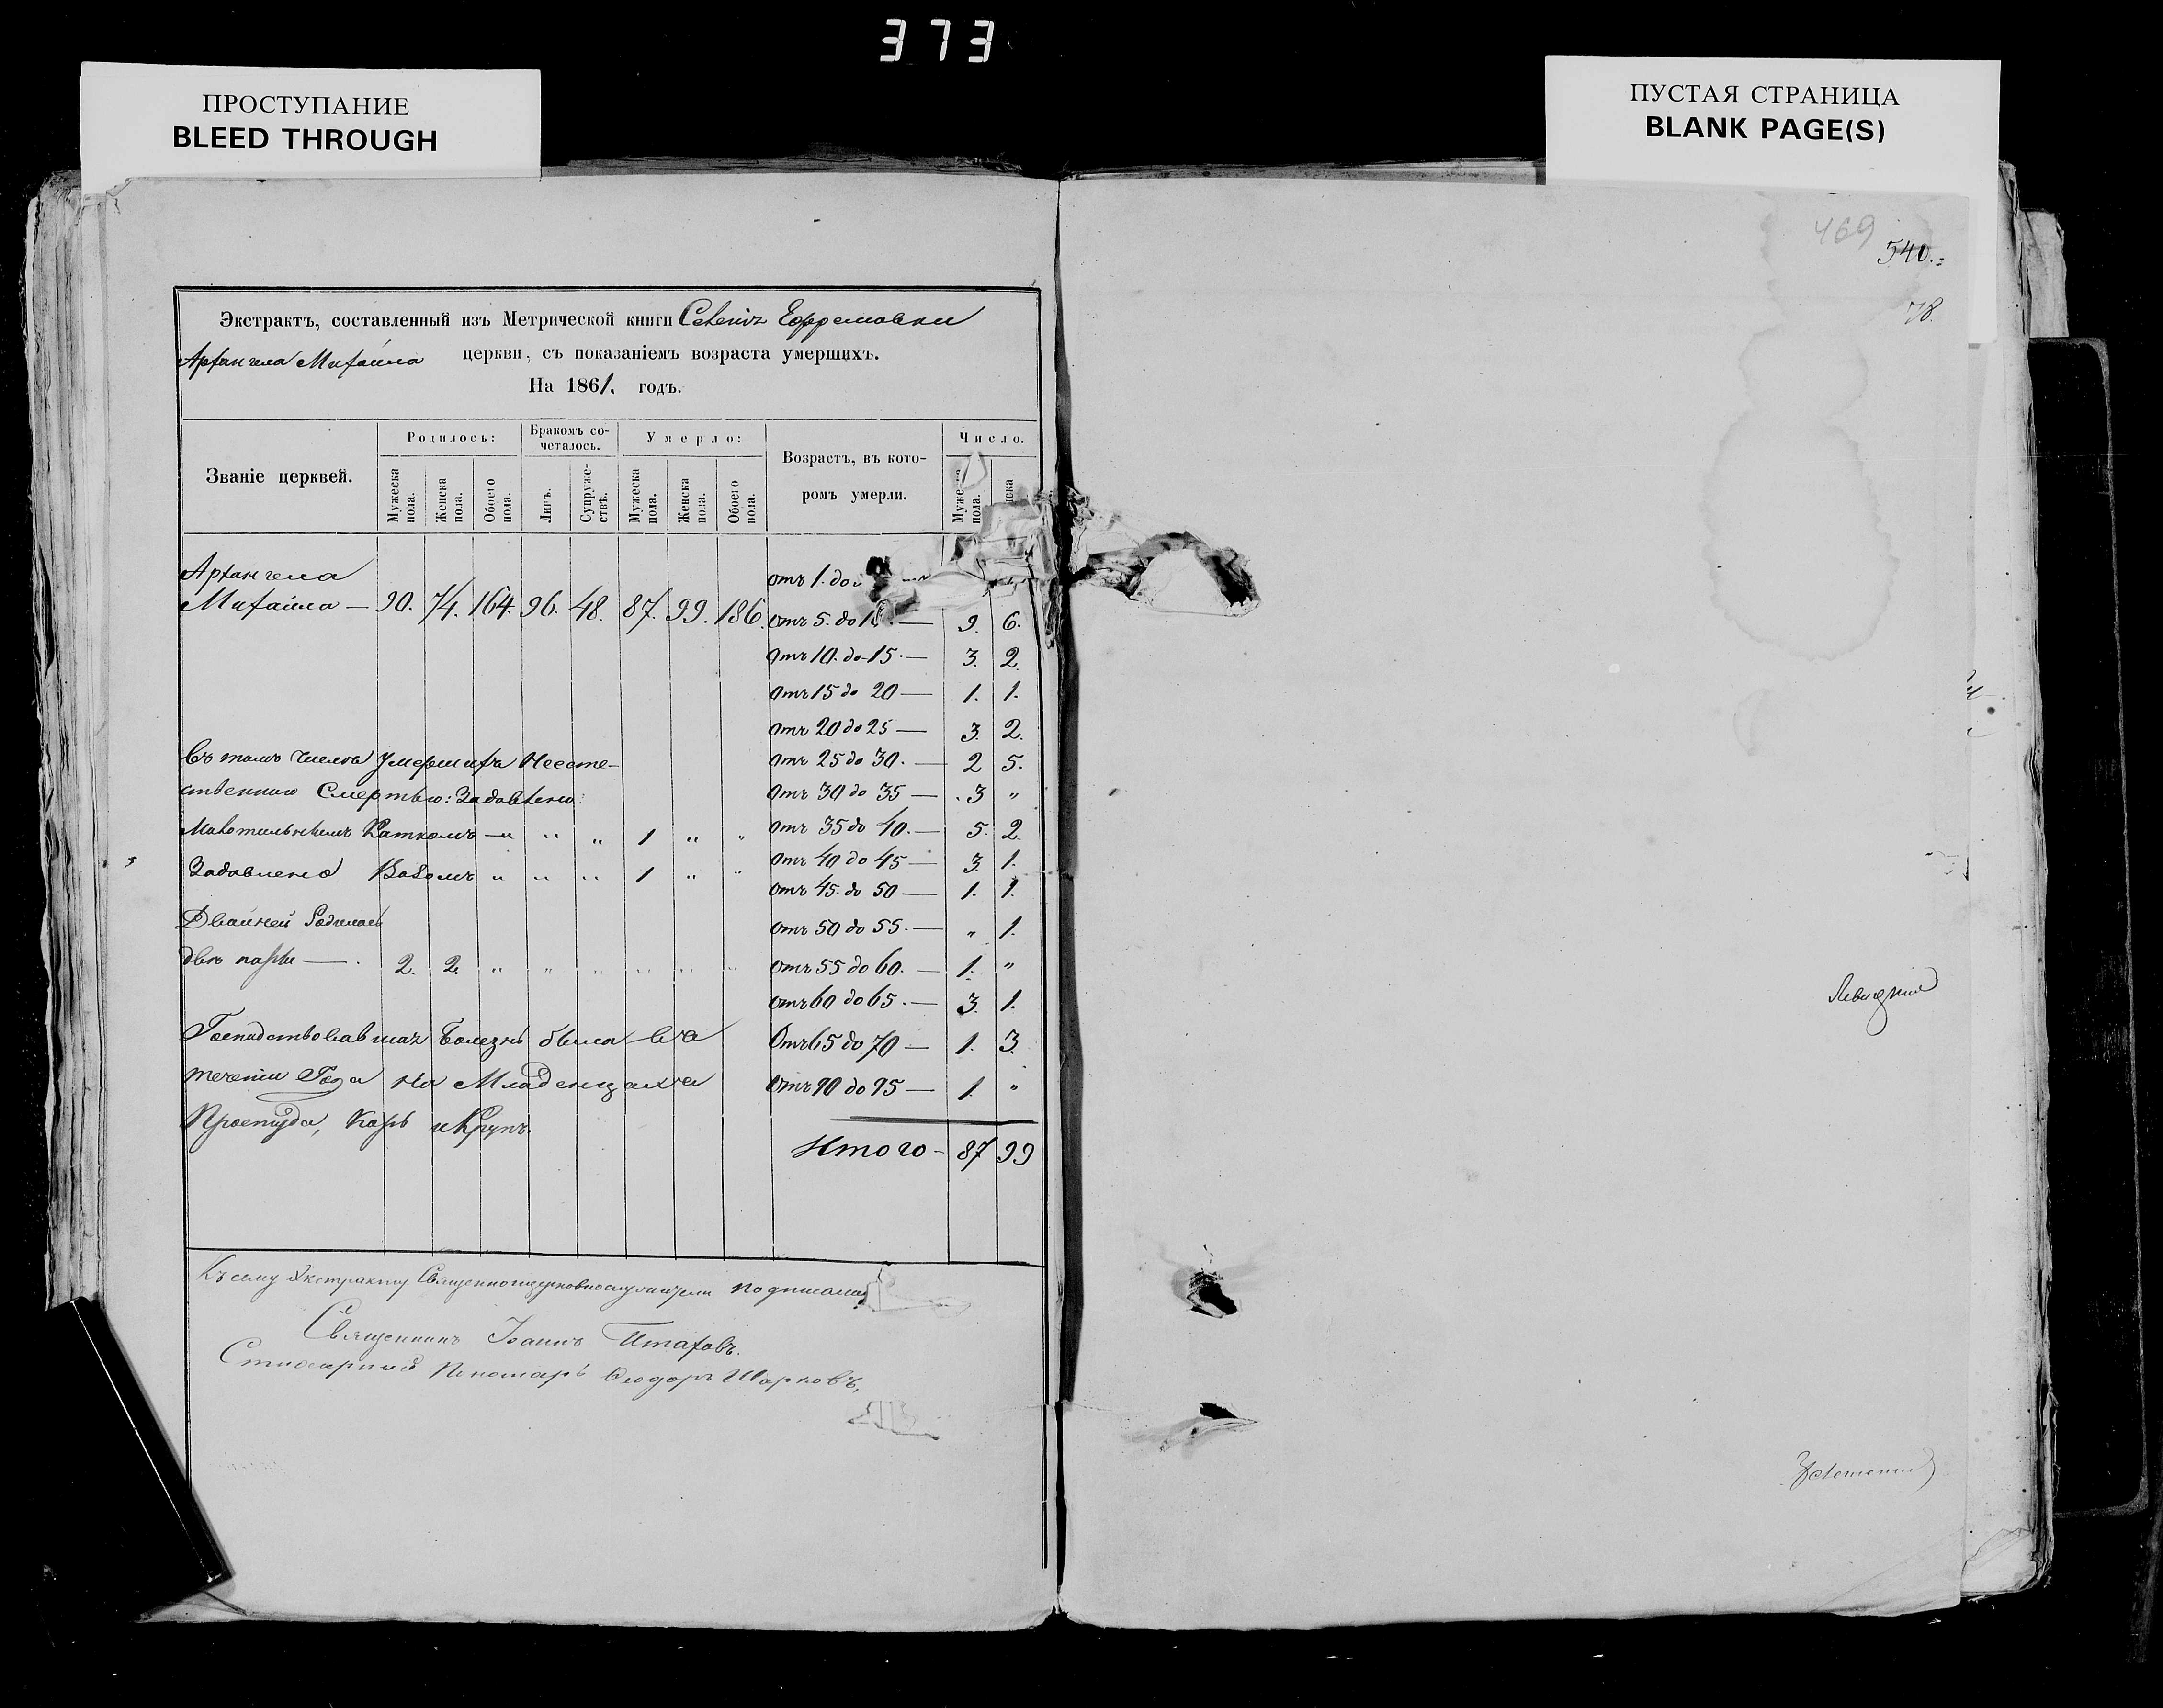 373
ПРОСТУПАНИЕ
BLEED THROUGH
ПУСТАЯ СТРАНИЦА
BLANK PAGE(S)
469
540.
78.
Экстрактъ, составленный изъ Метрической книги Селенія Ефремовки
Архангела Михаила церкви, съ показаніемъ возраста умершихъ.
На 1861. годъ.
Званіе церквей.
Родилось:
Мужеска пола.
Женска пола.
Обоего пола.
Бракомъ со-
четалось.
Лицъ.
Супруже-
ствъ.
Умерло:
Мужеска пола.
Женска пола.
Обоего пола.
Возрастъ, въ кото-
ромъ умерли.
Число.
пола.
Архангела
Михаила — 90. 74. 164. 96. 48. 87. 99. 186.
отъ 1. до
отъ 5. до — 9. 6.
отъ 10. до 15. — 3. 2.
отъ 15 до 20 — 1. 1.
отъ 20 до 25 — 3. 2.
отъ 25 до 30. — 2 5.
отъ 30 до 35 — 3 "
отъ 35 до 40. — 5. 2.
отъ 40 до 45 — 3. 1.
отъ 45. до 50 — 1. 1.
отъ 50 до 55. — " 1.
отъ 55 до 60. — 1. "
отъ 60 до 65. — 3. 1.
Отъ 65 до 70 — 1. 3.
отъ 90 до 95 — 1. "
Итого — 87 99
въ томъ числѣ умершихъ Неесте-
ственною Смертью: Задавлено:
Каткомъ — " " " 1 " "
Задавлено Возомъ " " " 1 " "
Двойней Родилось
двѣ пары — 2. 2. " " " " " "
Господствовавшая болезнь была въ
течении Года на Младенцахъ
Простуда, Корь и Крупъ.
Къ сему Экстракту Священноцерковнослужители подписались
Священникъ Іоаннъ
Стихарный Пономарь Ѳеодоръ